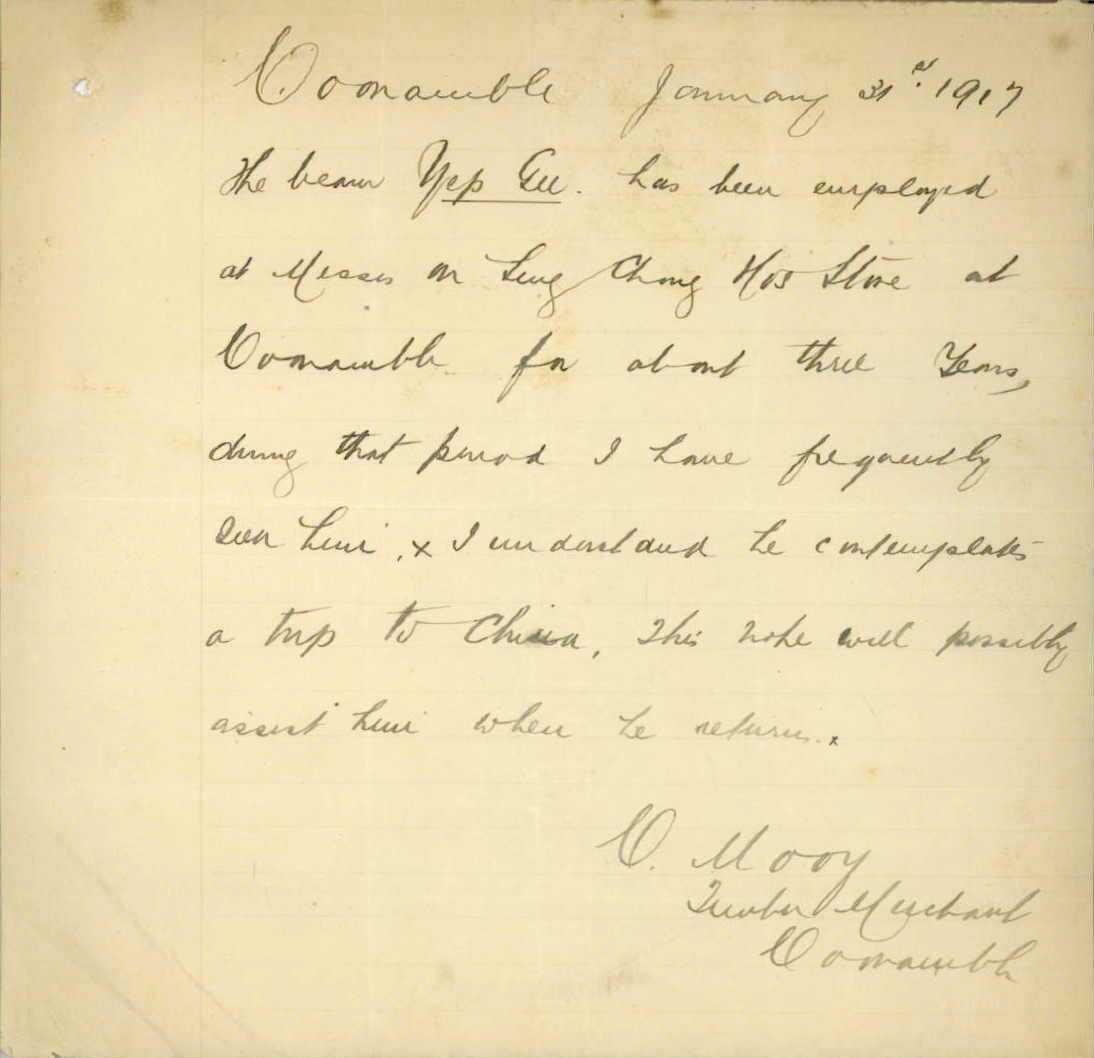 Coonamble January 31st. 1917
The bearer Yep Gee. has been employed
at Messrs On Sing Chong &
Store at
Coonamble. for about three Years,
during that period I have frequently
seen him, x I understand he contemplates
a trip to China, This note will possibly
assist him when he returns. x
C. Mooy
Timber Merchant
Coonamble